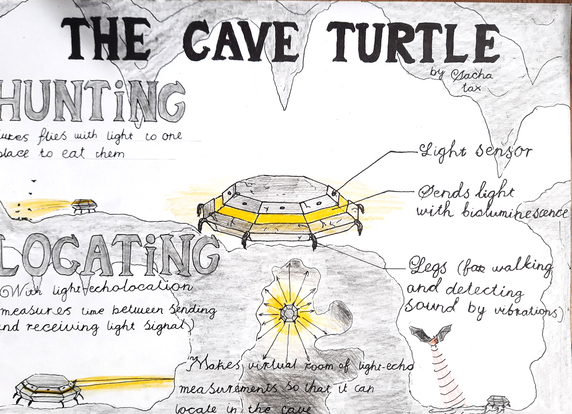 THE CAVE TURTLE
by Sacha
tax
HUNTING
lures flies with light to one
place to eat them
Light sensor
Sends light
with bioluminescence
Legs (for walking
and detecting
sound by vibrations)
LOCATING
With light/echolocation
measures time between sending
and receiving light signal)
Makes virtual room of light-echo
measurements so that it can
locate in the cave